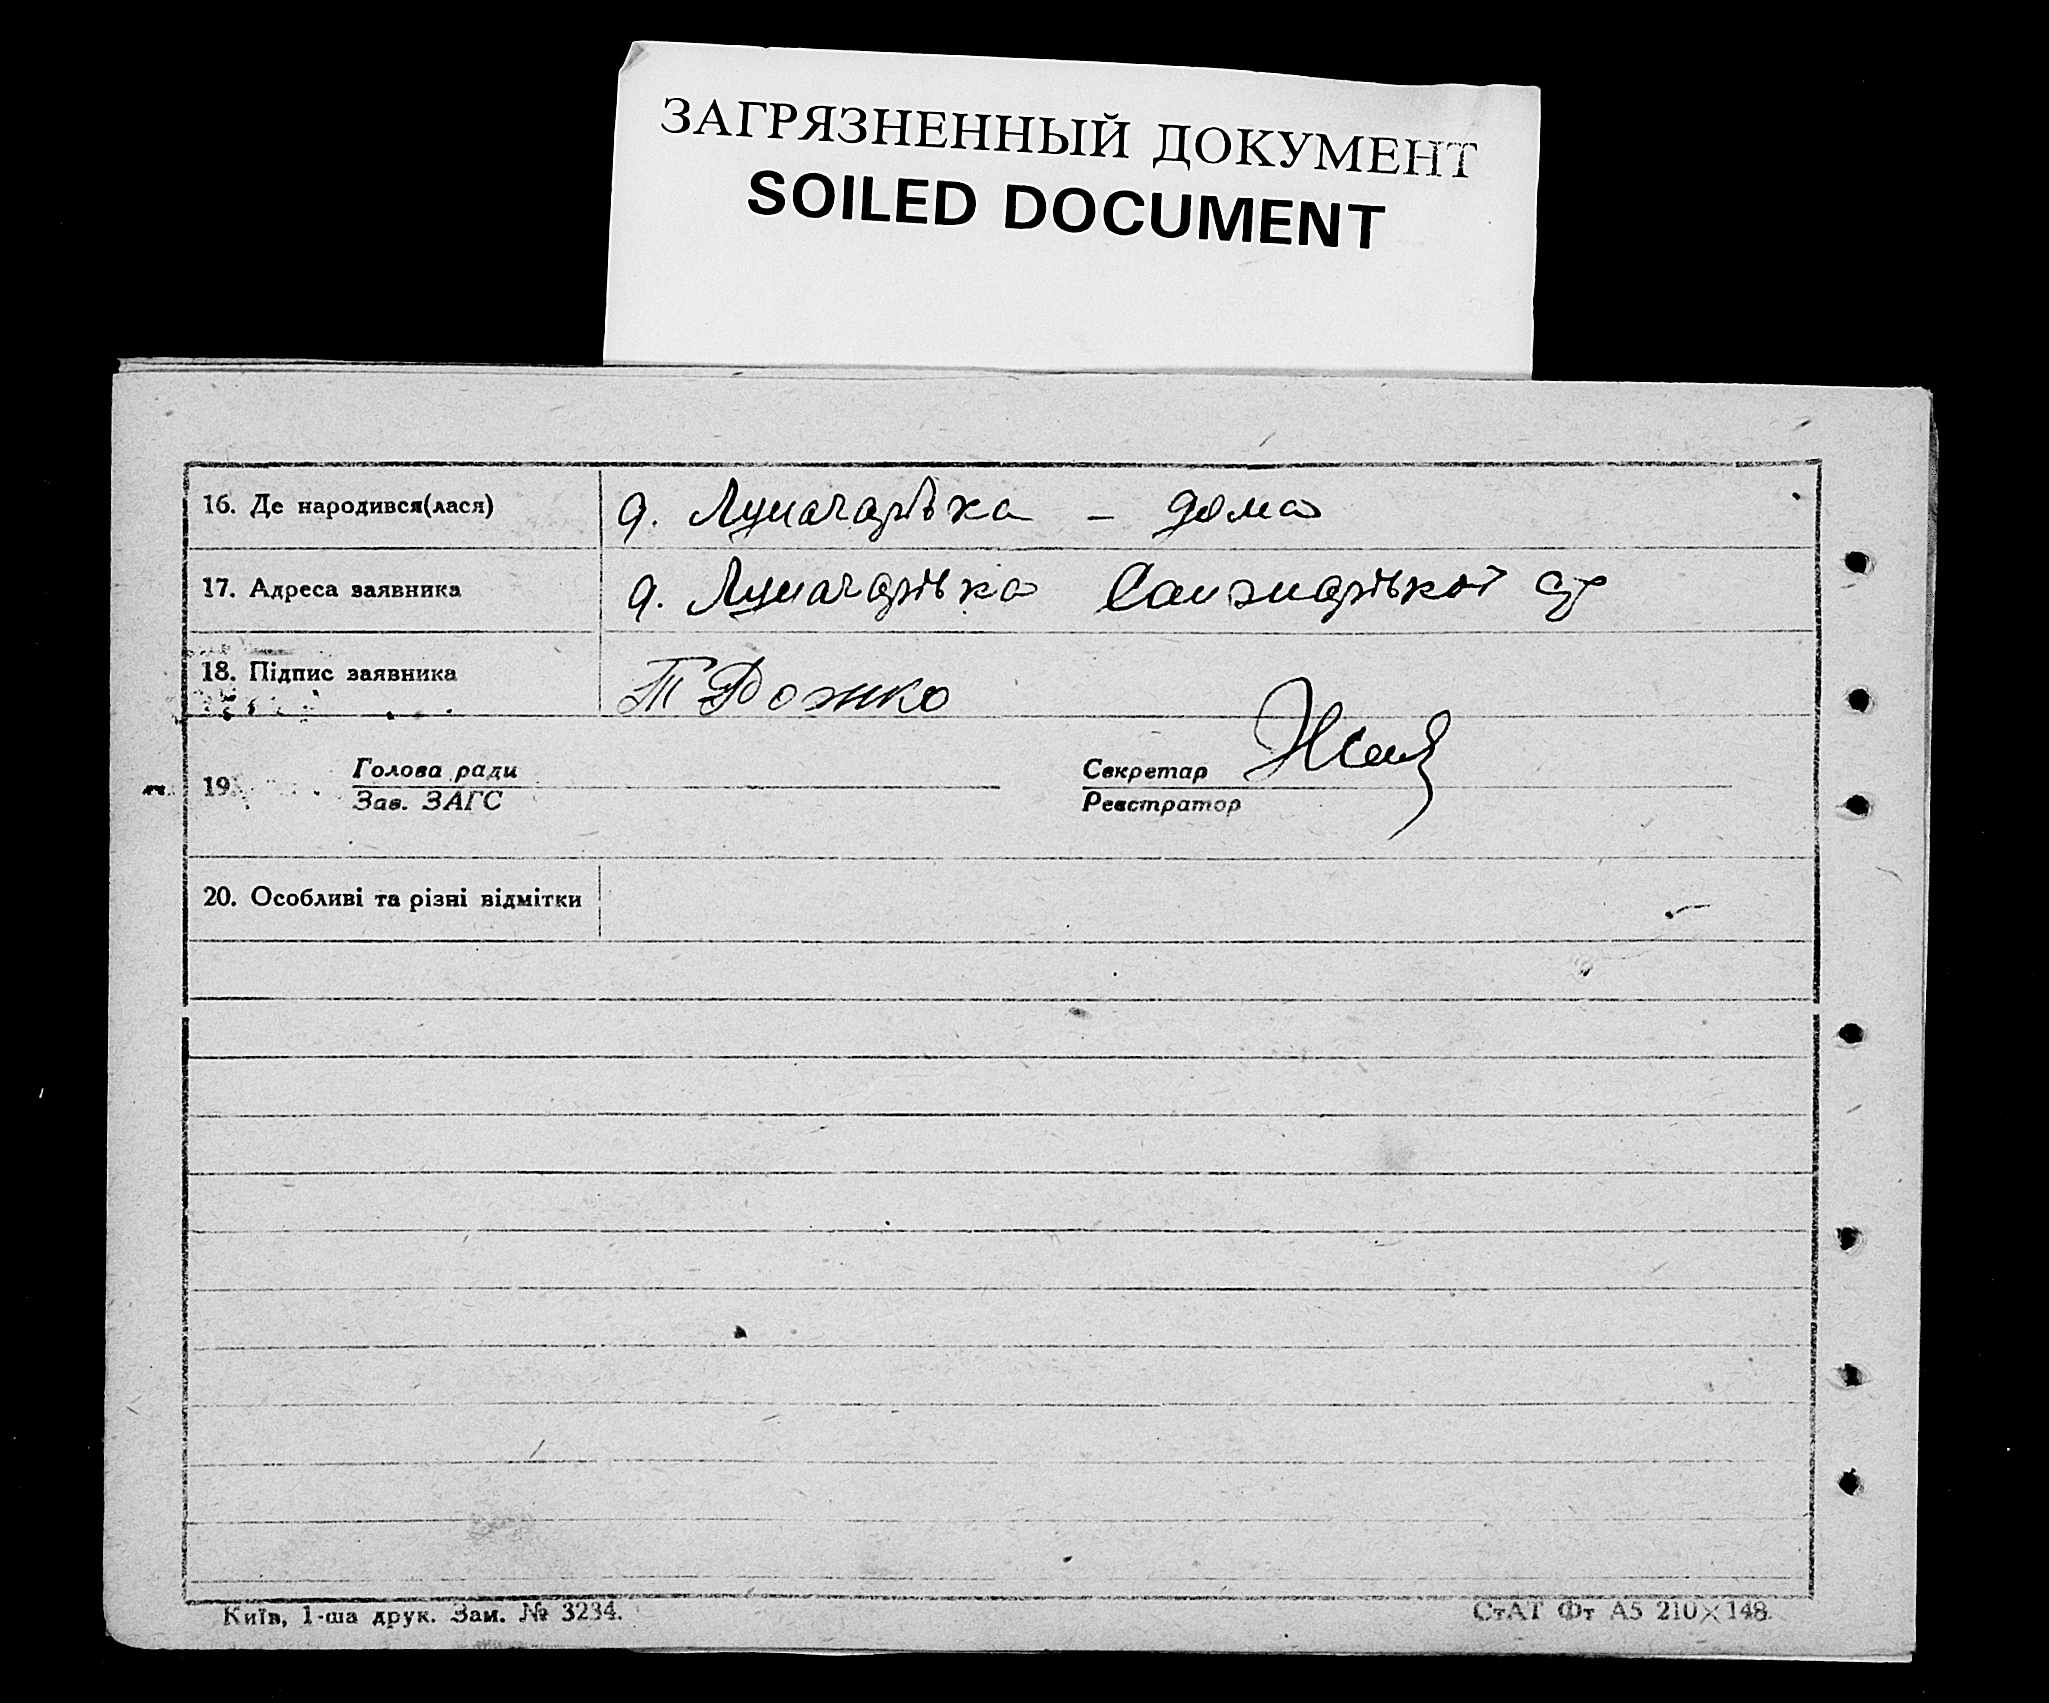 ЗАГРЯЗНЕННЫЙ ДОКУМЕНТ
SOILED DOCUMENT
16. Де народився(лася) д. Луначарівка – дома
17. Адреса заявника д. Луначарівка Санжарівкої
18. Підпис заявника Т Рожко
19 Голова ради Секретар
Зав. ЗАГС Реєстратор
20. Особливі та різні відмітки
Київ, 1-ша друк. Зам. № 3234. СтАТ Фт А5 210×148.